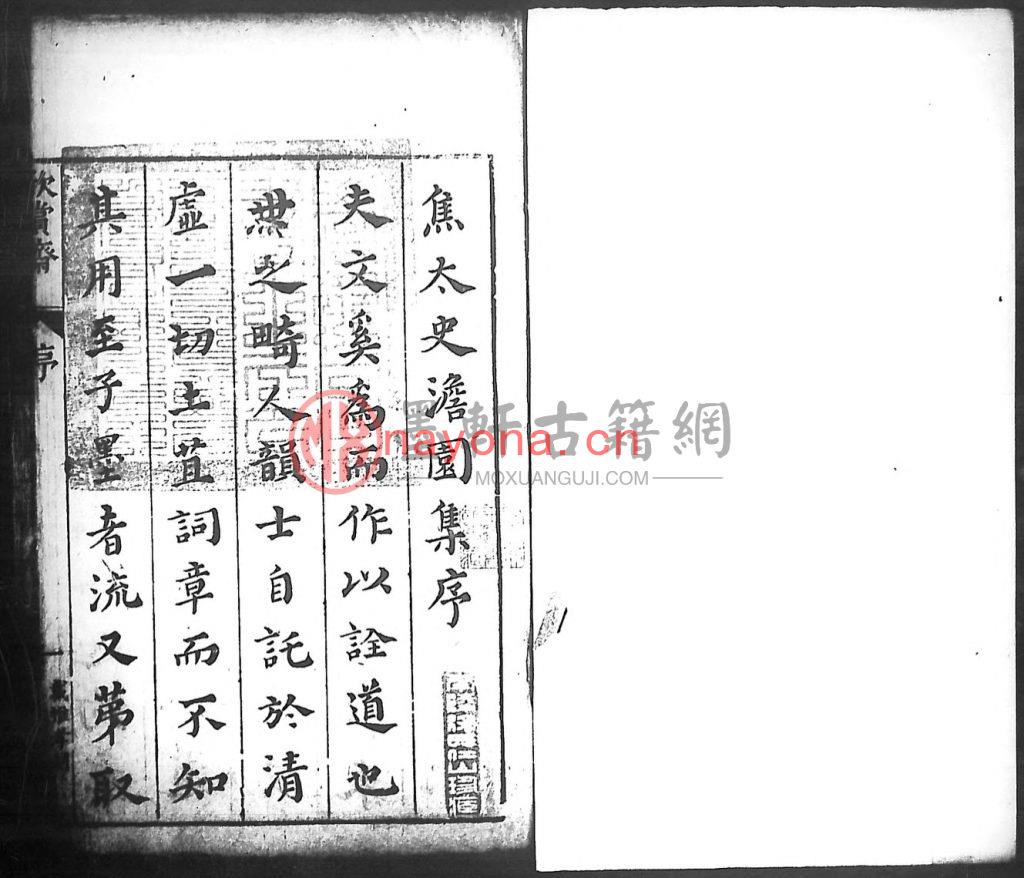 焦太史澹園集序
夫文奚爲而作以詮道也
無之畸人韻士自託於清
虛一切土苴詞章而不知
其用至子墨者流又苐取
欣賞齋
序
一
墨軒古籍網
nayona.cn
MOXUANGUJI.COM